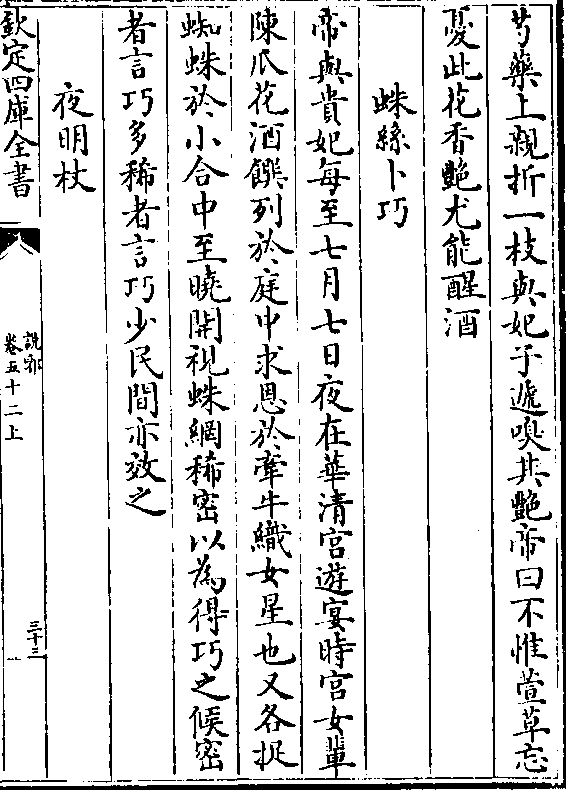 芍藥上親折一枝與妃子遞嗅其艶帝曰不惟萱草忘
憂此花香艶尤能醒酒
蛛絲卜巧
帝與貴妃每至七月七日夜在華清宮遊宴時宮女輩
陳瓜花酒饌列於庭中求恩於牽牛織女星也又各捉
蜘蛛於小合中至曉開視蛛網稀密以為得巧之候密
者言巧多稀者言巧少民間亦效之
夜明杖
欽定四庫全書
說郛
卷五十二上
三十三